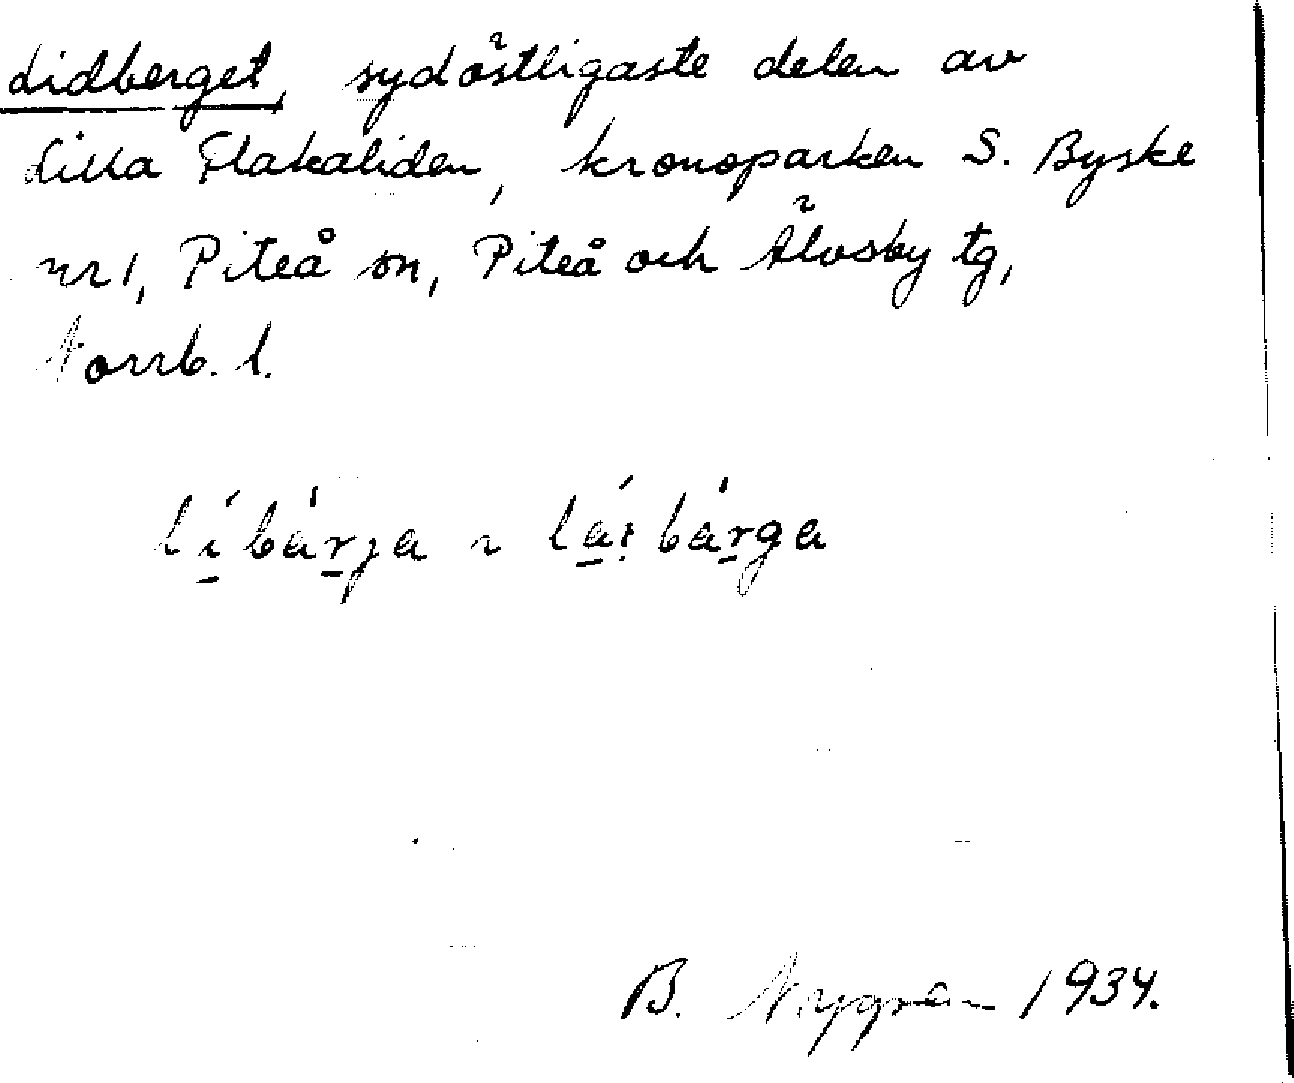 Lidberget, sydöstligaste delen av
Lilla Flakaliden, kronoparken S. Byske
nr 1, Piteå sn, Piteå och Älvsby tg,
Norrb. l.
B. Nygren 1934.